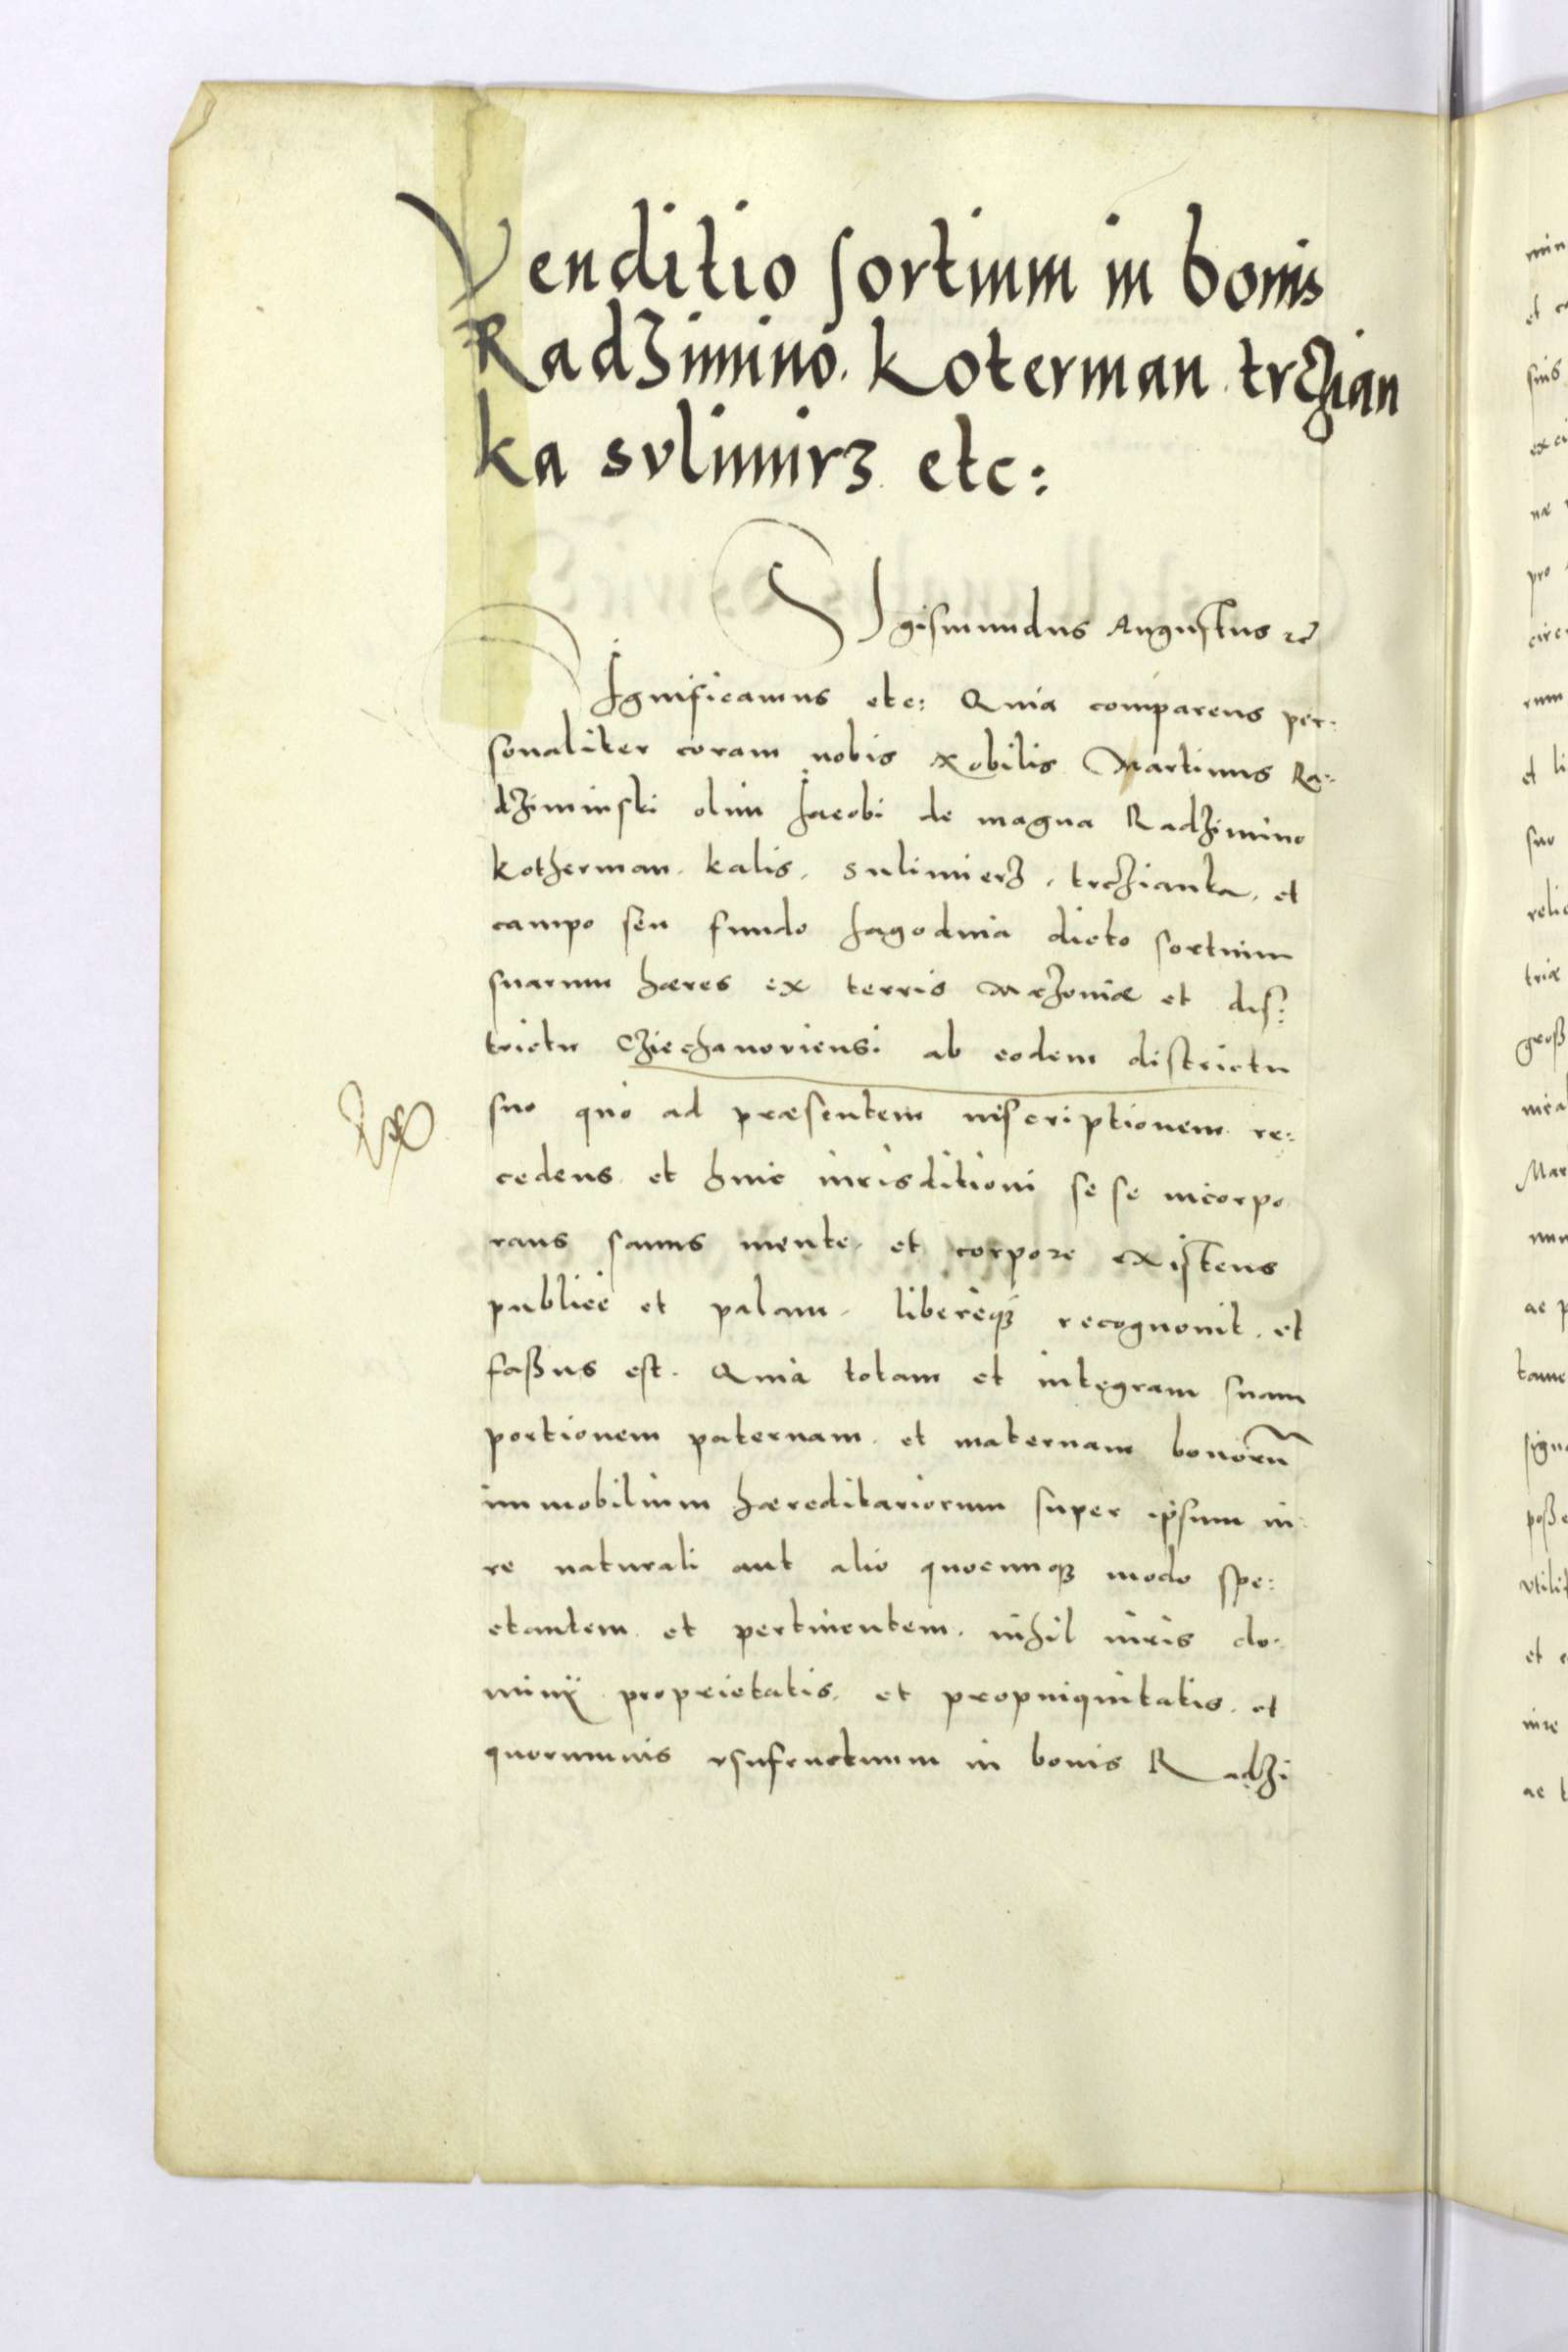 Venditio sortium in bonis
Radzimino. Koterman. trczian
ka sulimirz etc:
Sigismundus Augustus etc
Significamus etc: Quia comparens per-
sonaliter coram nobis Nobilis Martinus Ra-
dziminski olim Jacobi de magna Radzimino
kotherman. kalis. sulimierz. trczianka. et
campo seu fundo Jagodnia dicto sortium
suarum hæres ex terris Mazoniæ et dis-
trictu Cziechanoviensi ab eodem districtu
suo quo ad præsentem inscriptionem re-
cedens et huic iurisditioni se se incorpo
rans sanus mente et corpore existens
publice et palam. libereque recognovit. et
faßus est. Quia totam et integram suam
portionem paternam. et maternam bonorū
immobilium hæreditariorum super ipsum iu-
re naturali aut alio quocunque modo spe-
ctantem et pertinentem. nihil iuris do-
minÿ proprietatis. et propinquitatis. et
quorumvis vsufructuum in bonis Radzi
min
et
suis
næ
pro
circ
rum
et li
suo
relic
triæ
groß
Mar
num
ac p
tame
signa
poße
vtilit
et
iure
ac t